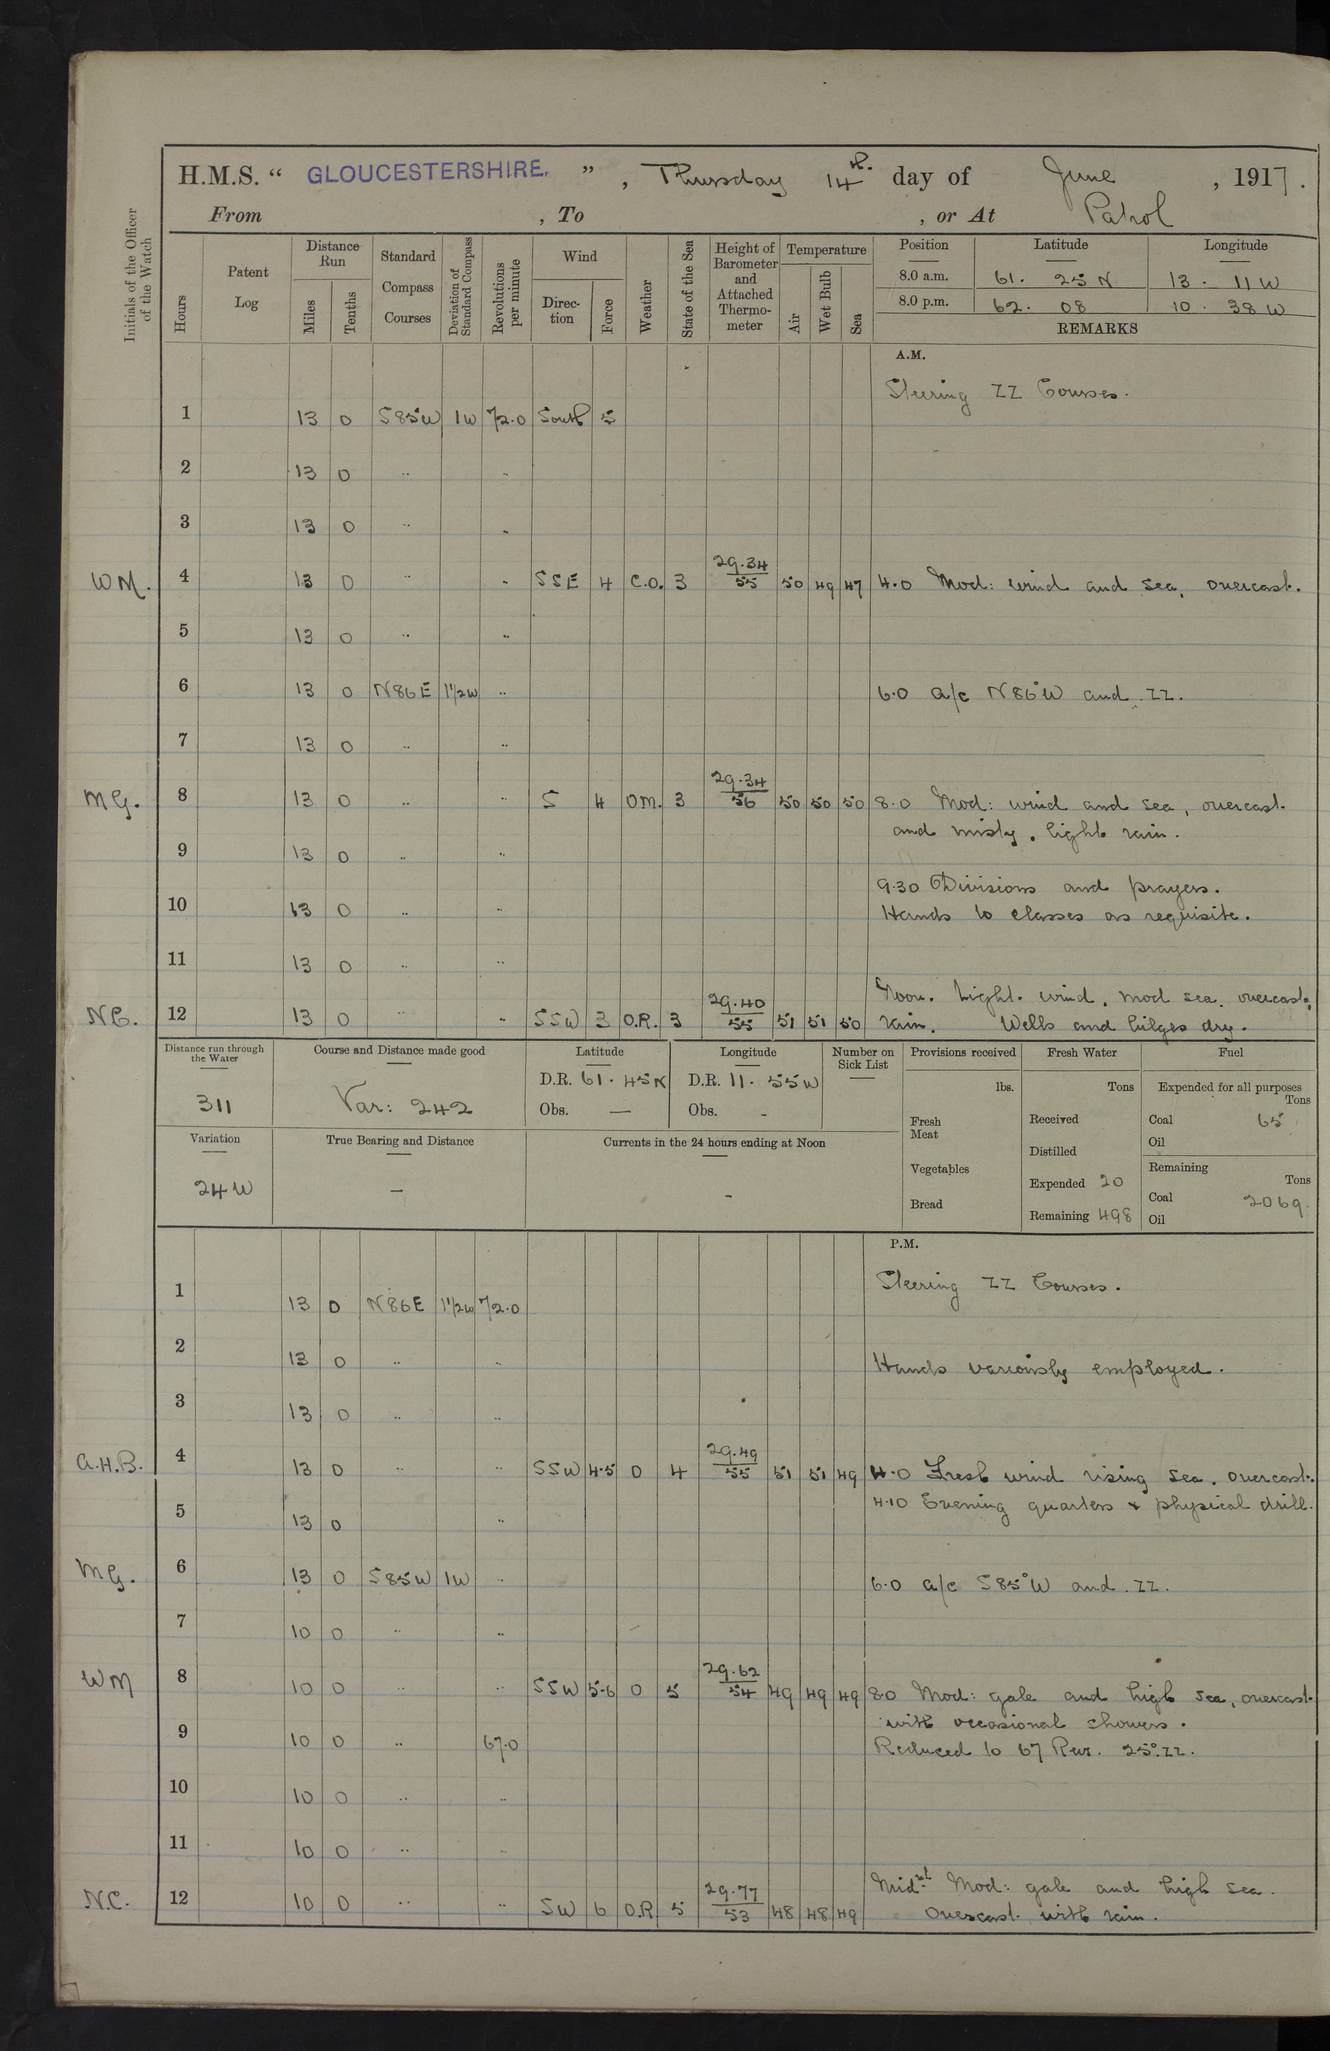 H.M.S. “ GLOUCESTERSHIRE. ” , Thursday 14th. day of June , 1917.
From , To , or At Patrol
Initials of the Officer of the Watch
Hours
Patent Log
Distance Run
Miles
Tenths
Standard Compass Courses
Deviation of Standard Compass
Revolutions per minute
Wind
Direction
Force
Weather
State of the Sea
Height of Barometer and Attached Thermometer
Temperature
Air
Wet Bulb
Sea
Position Latitude Longitude
8.0 a.m. 61. 25 N 13. 11 W
8.0 p.m. 62. 08 10. 38 W
REMARKS
A.M.
Steering ZZ Courses.
1 13 0 S85W 1W 72.0 South 5
2 13 0 .. ..
3 13 0 .. ..
WM. 4 13 0 .. .. SSE 4 C.O. 3 29.34/55 50 49 47 4.0 Mod: wind and sea, overcast.
5 13 0 .. ..
6 13 0 N86E 1½W .. 6.0 a/c N86°W and ZZ.
7 13 0 .. ..
MG. 8 13 0 .. .. S 4 OM. 3 29.34/56 50 50 50 8.0 Mod: wind and sea, overcast
and misty, light rain.
9 13 0 .. ..
9.30 Divisions and prayers.
10 13 0 .. .. Hands to classes as requisite.
11 13 0 .. ..
Noon. Light wind, mod sea, overcast,
NC. 12 13 0 .. .. SSW 3 O.R. 3 29.40/55 51 51 50 rain. Wells and bilges dry.
Distance run through the Water
311
Course and Distance made good
Var: 242
Latitude
D.R. 61. 45N
Obs. —
Longitude
D.R. 11. 55W
Obs. -
Number on Sick List
Provisions received
lbs.
Fresh Meat
Vegetables
Bread
Fresh Water
Tons
Received
Distilled
Expended 20
Remaining 498
Fuel
Expended for all purposes
Tons
Coal 65
Oil
Remaining
Tons
Coal 2069.
Oil
Variation
24W
True Bearing and Distance
–
Currents in the 24 hours ending at Noon
–
P.M.
Steering ZZ Courses.
1 13 0 N86E 1½W 72.0
2 13 0 .. .. Hands variously employed.
3 13 0 .. ..
A.H.B. 4 13 0 .. .. SSW 4.5 0 4 29.49/55 51 51 49 4.0 Fresh wind rising sea. overcast.
4.10 Evening quarters & physical drill.
5 13 0 ..
MG. 6 13 0 S85W 1W .. 6.0 a/c S85°W and ZZ.
7 10 0 .. ..
WM 8 10 0 .. .. SSW 5-6 0 5 29.62/54 49 49 49 8.0 Mod: gale and high sea, overcast
with occasional showers.
9 10 0 .. 67.0 Reduced to 67 Rev. 25° ZZ.
10 10 0 .. ..
11 10 0 .. ..
Midnt Mod: gale and high sea.
N.C. 12 10 0 .. .. SW 6 O.R 5 29.77/53 48 48 49 overcast with rain.